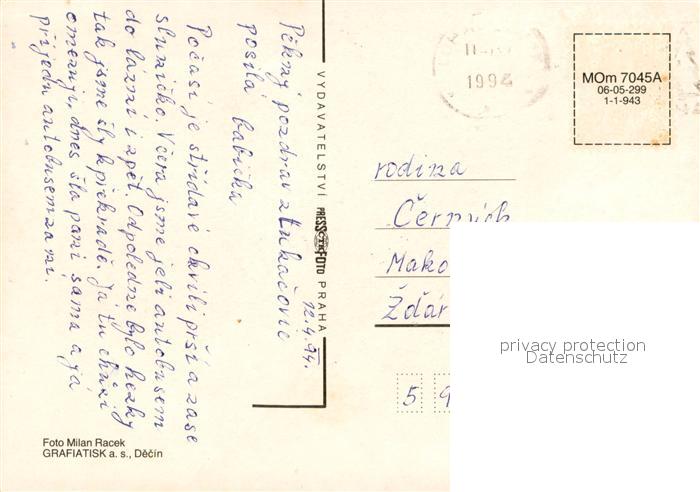 Pěkný pozdrav z Lukačovic
posílá babička
12.4.94.
Počasí je střídavé chvíli prší a zase
sluníčko. Včera jsme jeli autobusem
do lázní i zpět. Odpoledne bylo hezky
tak jsme šly k přehradě. Já tu chůzi
omezuji, dnes šla paní sama a já
přijedu autobusem za ní.
VYDAVATELSTVÍ PRESSFOTO PRAHA
1994
MOm 7045A
06-05-299
1-1-943
rodina
Černých
Mako
Žďár
5 9
privacy protection
Datenschutz
Foto Milan Racek
GRAFIATISK a. s., Děčín